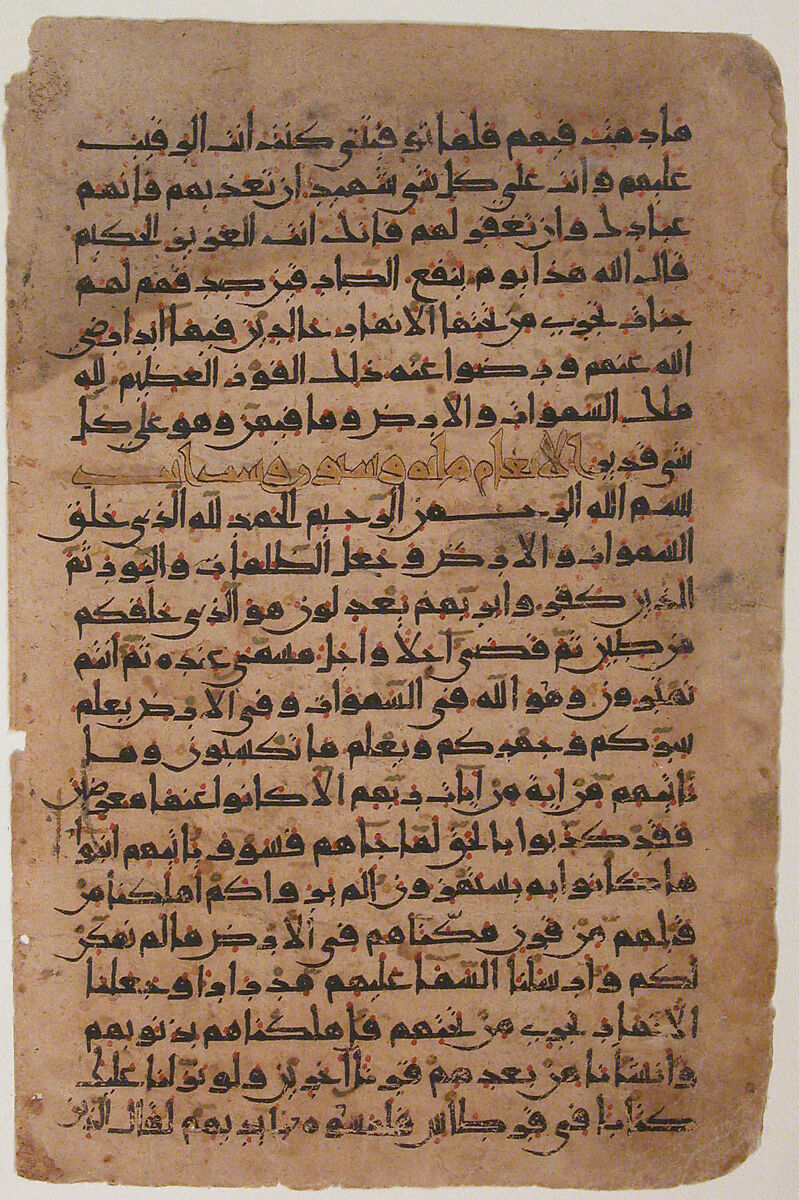 ما دمت فيهم فلما توفيتني كنت انت الرقيب
عليهم وانت علي كل شي شهيد ان تعذبهم فانهم
عبادك وان تغفر لهم فانك انت العزيز الحكيم
قال الله هذا يوم ينفع الصادقين صدقهم لهم
جنات تجري من تحتها الانهار خالدين فيها ابدا رضي
الله عنهم ورضوا عنه ذلك الفوز العظيم لله
ملك السموات والارض وما فيهن وهو علي كل
شي قدير الانعام مايه وستون وست ايات
بسم الله الرحمن الرحيم الحمد لله الذي خلق
السموات والارض وجعل الظلمات والنور ثم
الذين كفروا بربهم يعدلون هو الذي خلقكم
من طين ثم قضى اجلا واجل مسمى عنده ثم انتم
تمترون وهو الله في السموات وفي الارض يعلم
سركم وجهركم ويعلم ما تكسبون وما
تاتيهم من اية من ايات ربهم الا كانوا عنها معرضين
فقد كذبوا بالحق لما جاهم فسوف ياتيهم انبوا
ما كانوا به يستهزون الم يروا كم اهلكنا من
قبلهم من قرن مكناهم في الارض ما لم نمكن
لكم وارسلنا السما عليهم مدرارا وجعلنا
الانهار تجري من تحتهم فاهلكناهم بذنوبهم
وانشانا من بعدهم قرنا آخرين ولو نزلنا عليك
كتابا في قرطاس فلمسوه بايديهم لقال الذين